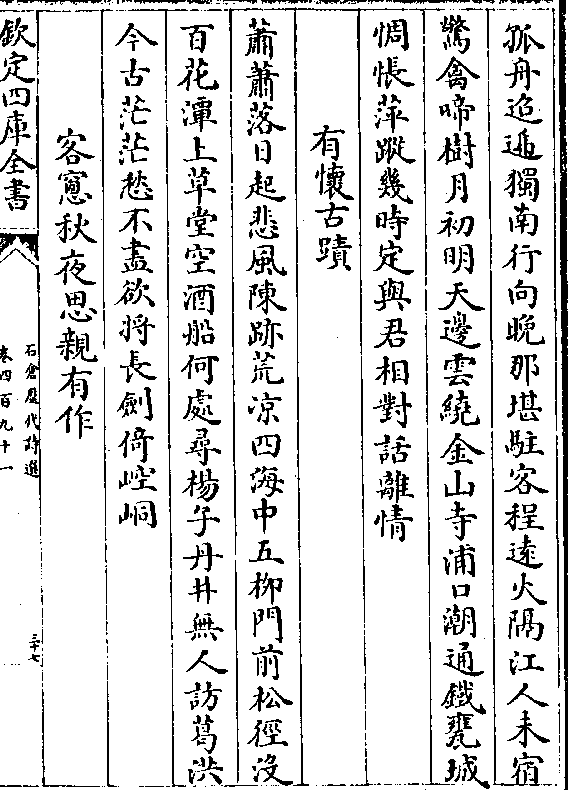 孤舟迢遞獨南行向晚那堪駐客程遠火隔江人未宿
驚禽啼樹月初明天邊雲繞金山寺浦口潮通鐡甕城
惆悵萍蹤幾時定與君相對話離情
有懷古蹟
蕭蕭落日起悲風陳跡荒凉四海中五柳門前松徑沒
百花潭上草堂空酒船何處尋楊子丹井無人訪葛洪
今古茫茫愁不盡欲将長劍倚崆峒
客窻秋夜思親有作
欽定四庫全書
石倉歴代詩選
卷四百九十一
三十七